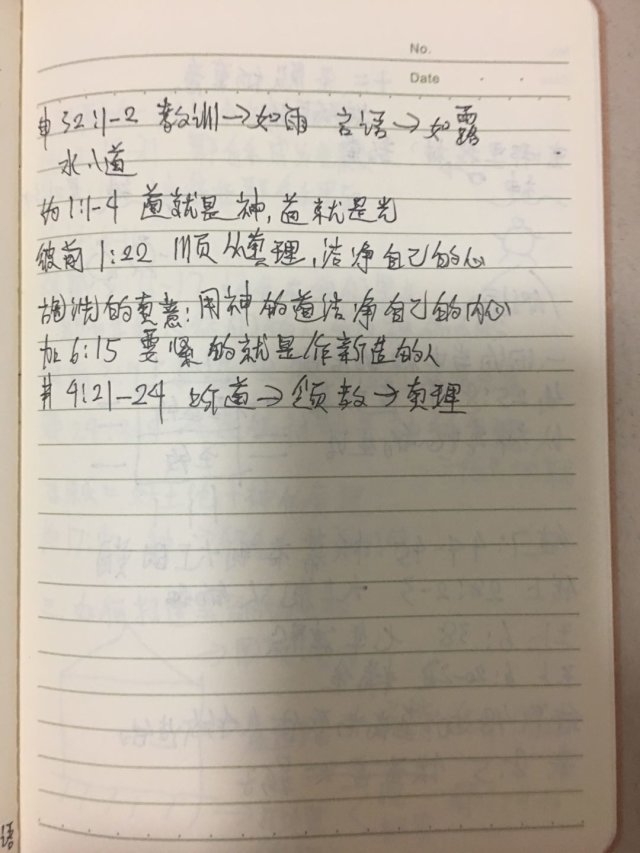 No.
Date
申32:1-2 教训→如雨 言语→如露
水八道
约1:1-4 道就是神,道就是光
彼前1:22 顺从真理,洁净自己的心
洗的真意:用神的道洁净自己的内心
加6:15 要紧的就是作新造的人
弗4:21-24 听道→领教→真理
语